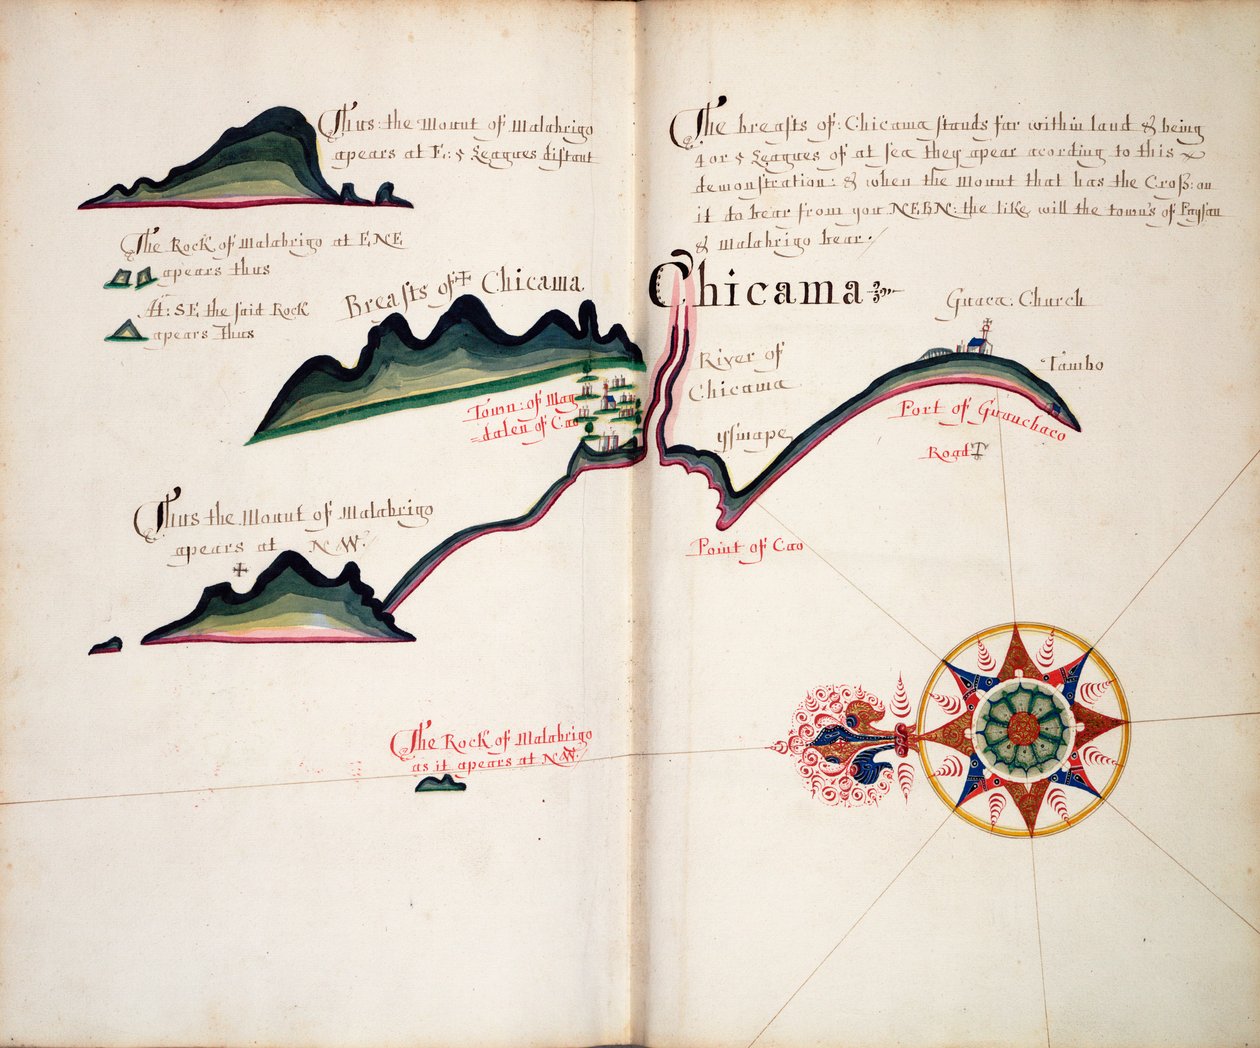 Thus: the Mount of Malabrigo
apears at E: 5 Leagues distant
The Rock of Malabrigo at ENE
apears thus
At: SE the said Rock
apears Thus
Breasts of Chicama
Town: of Mag
=dalen of Cao
Thus the Mount of Malabrigo
apears at NW:
The Rock of Malabrigo
as it apears at NW.
The breasts of: Chicama stands far within land & being
4 or 5 Leagues of at sea they apear acording to this
demonstration: & when the Mount that has the Cross: on
it do bear from you NEBN: the like will the town's of Paysan
& Malabrigo bear.
Chicama
River of
Chicama
Guaca: Church
Tambo
yssnape
Port of Guanchaco
Road
Point of Cao